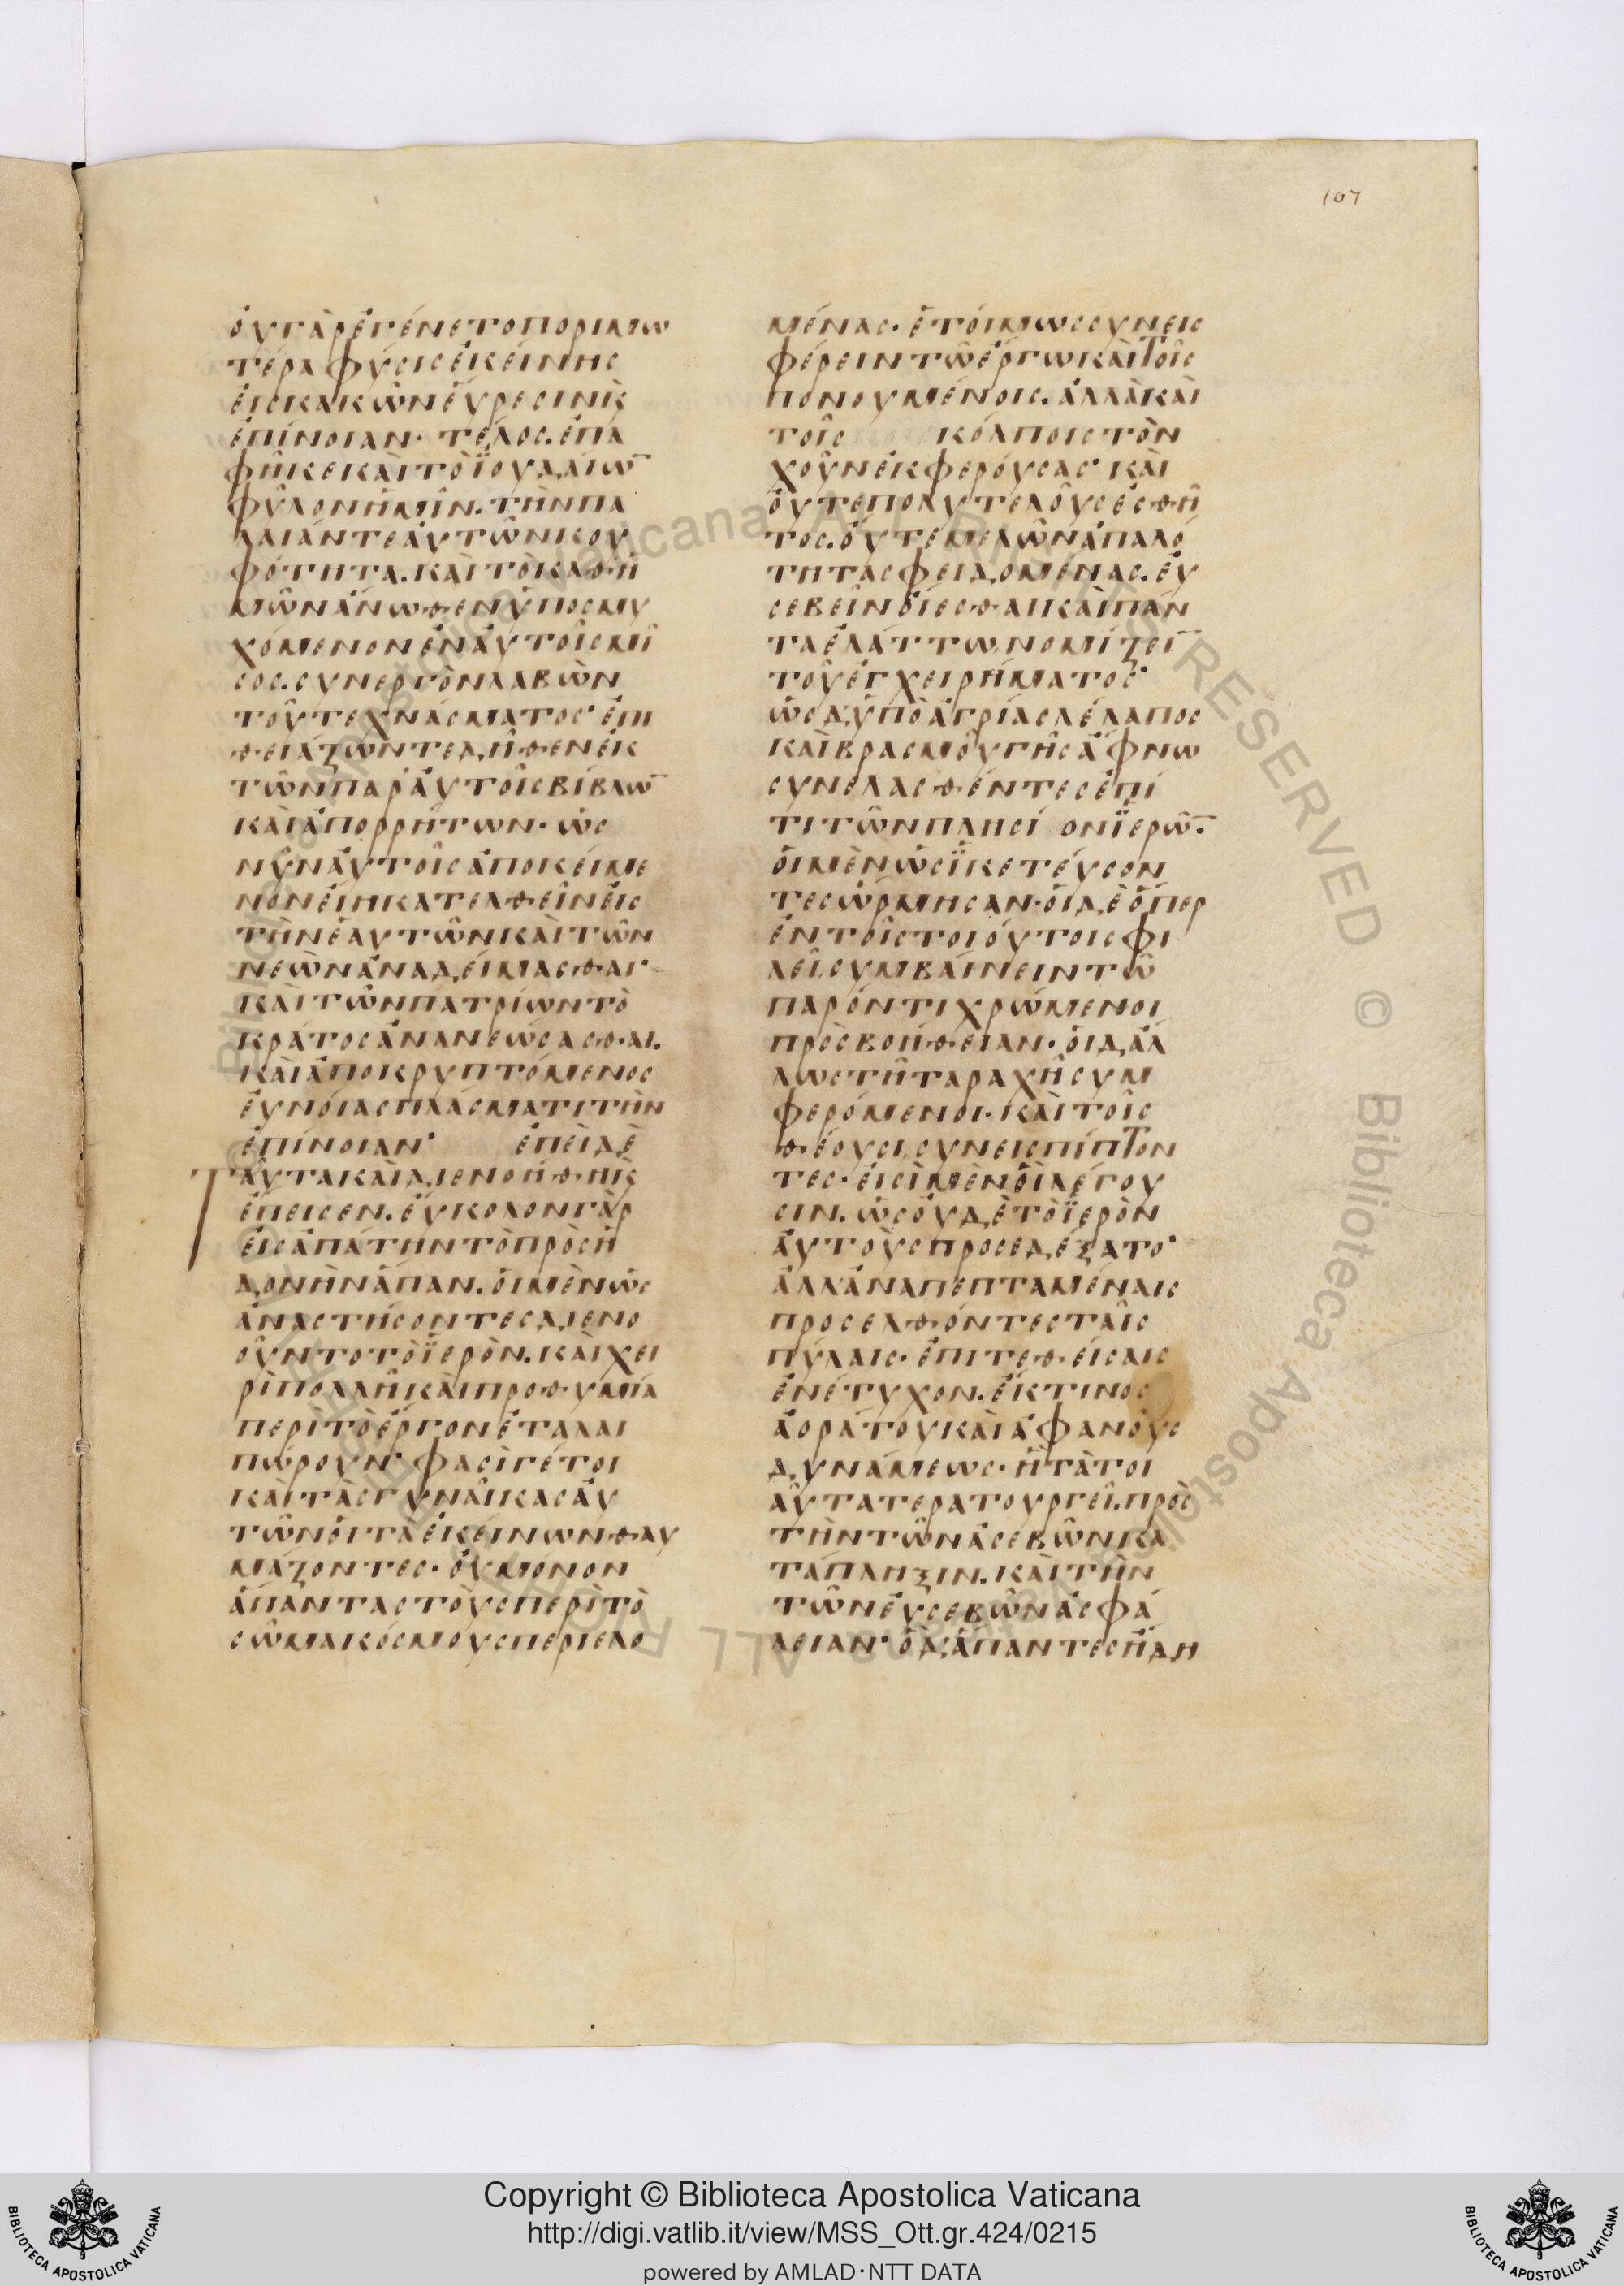 107
ὀυγὰρἐγένετοποριμω
τέραφύσιςἐκείνης
ἐισκακῶνἐύρεσινκ̀
ἐπίνοιαν· τέλος.ἐπα
φῆκεκαὶτὸϊουδαίω̅
φῦλονἡμῖν.τὴνπα
λαιάντεἀυτῶνκου
φότητα.καὶτὸκαθἡ
μῶνἄνωθενὑποσμυ
χόμενονἐνἀυτοῖςμῖ
σος.συνεργὸνλαβὼν
τοῦτεχνάσματος· ἐπι
θειάζωντεδῆθενἐκ
τῶνπαρἀυτοῖςβίβλω̅
καὶἀπορρήτων· ὡς
νῦνἀυτοῖςἀποκείμε
νονἐίηκατελθεῖνἐις
τὴνἑαυτῶνκαὶτῶν
νεὼνἀναδείμασθαι·
καὶτῶνπατρίωντὸ
κράτοςἀνανεώσασθαι.
καὶἀποκρυπτόμενος
ἐυνόιαςπλάσματιτὴν
ἐπίνοιαν· ἐπεὶδὲ
Ταῦτακαὶδιενοήθηκ̀
ἔπεισεν.ἐύκολονγὰρ
ἐισἀπάτηντὸπρὸσἡ
δονὴνἅπαν.ὁιμὲνὡς
ἀναστήσοντεςδιενο
οῦντοτὸϊερὸν.καὶχει
ρὶπολλῆκαὶπροθυμία
περὶτὸἔργονἐταλαι
πώρουν· φασὶγέτοι
καὶτὰςγυναῖκαςἀυ
τῶνὁιτὰἐκείνωνθαυ
μάζοντες· ὀυμόνον
ἅπανταςτοὺςπερὶτὸ
σῶμακόσμουςπεριελο
μένας· ἑτόιμωςσυνεις
φέρειντῶἔργωκαὶτοῖς
πονουμένοις.ἀλλὰκαὶ
τοῖς κόλποιςτὸν
χοῦνἐκφερόυσας· καὶ
ὄυτεπολυτελοῦςἐσθῆ
τος.ὄυτεμελῶνἁπαλό
τηταςφειδομένας.ἐυ
σεβεῖνὄιεσθαικαὶπάν
ταἐλάττωνομίζει̅
τοῦἐγχειρήματος·
ὡςδὑπὸἀγρίαςλέλαπος
καὶβρασμοῦγῆςἄφνω
συνελασθέντεςἐπί
τιτῶνπλησί ονϊερῶ̅.
ὁιμὲνὡσϊκετέυσον
τεςὥρμησαν· ὁιδὲὅπερ
ἐντοῖςτοιόυτοιςφι
λεῖ,συμβαίνειντῶ
παρόντιχρώμενοι
πρὸςβοήθειαν· ὁιδἄλ
λωςτῆταραχῆσυμ
φερόμενοι· καὶτοῖς
θέουσι,συνεισπίπτον
τες· ἐισὶμὲνὁὶλέγου
σιν.ὡςὀυδὲτὸϊερὸν
ἀυτοὺςπροσεδέξατο·
ἀλλἀναπεπταμέναις
προσελθόντεςταῖς
πύλαις· ἐπιτεθείσαις
ἐνέτυχον.ἔκτινος
ἀοράτουκαὶἀφανοῦς
δυνάμεως· ἣτὰτοι
αῦτατερατουργεῖ.πρὸς
τὴντῶνἀσεβῶνκα
τάπληξιν.καὶτὴν
τῶνἐυσεβῶνἀσφά
λειαν· ὃδἅπαντεςἤδη
Copyright © Biblioteca Apostolica Vaticana
http://digi.vatlib.it/view/MSS_Ott.gr.424/0215
powered by AMLAD·NTT DATA
BIBLIOTECA APOSTOLICA VATICANA
BIBLIOTECA APOSTOLICA VATICANA